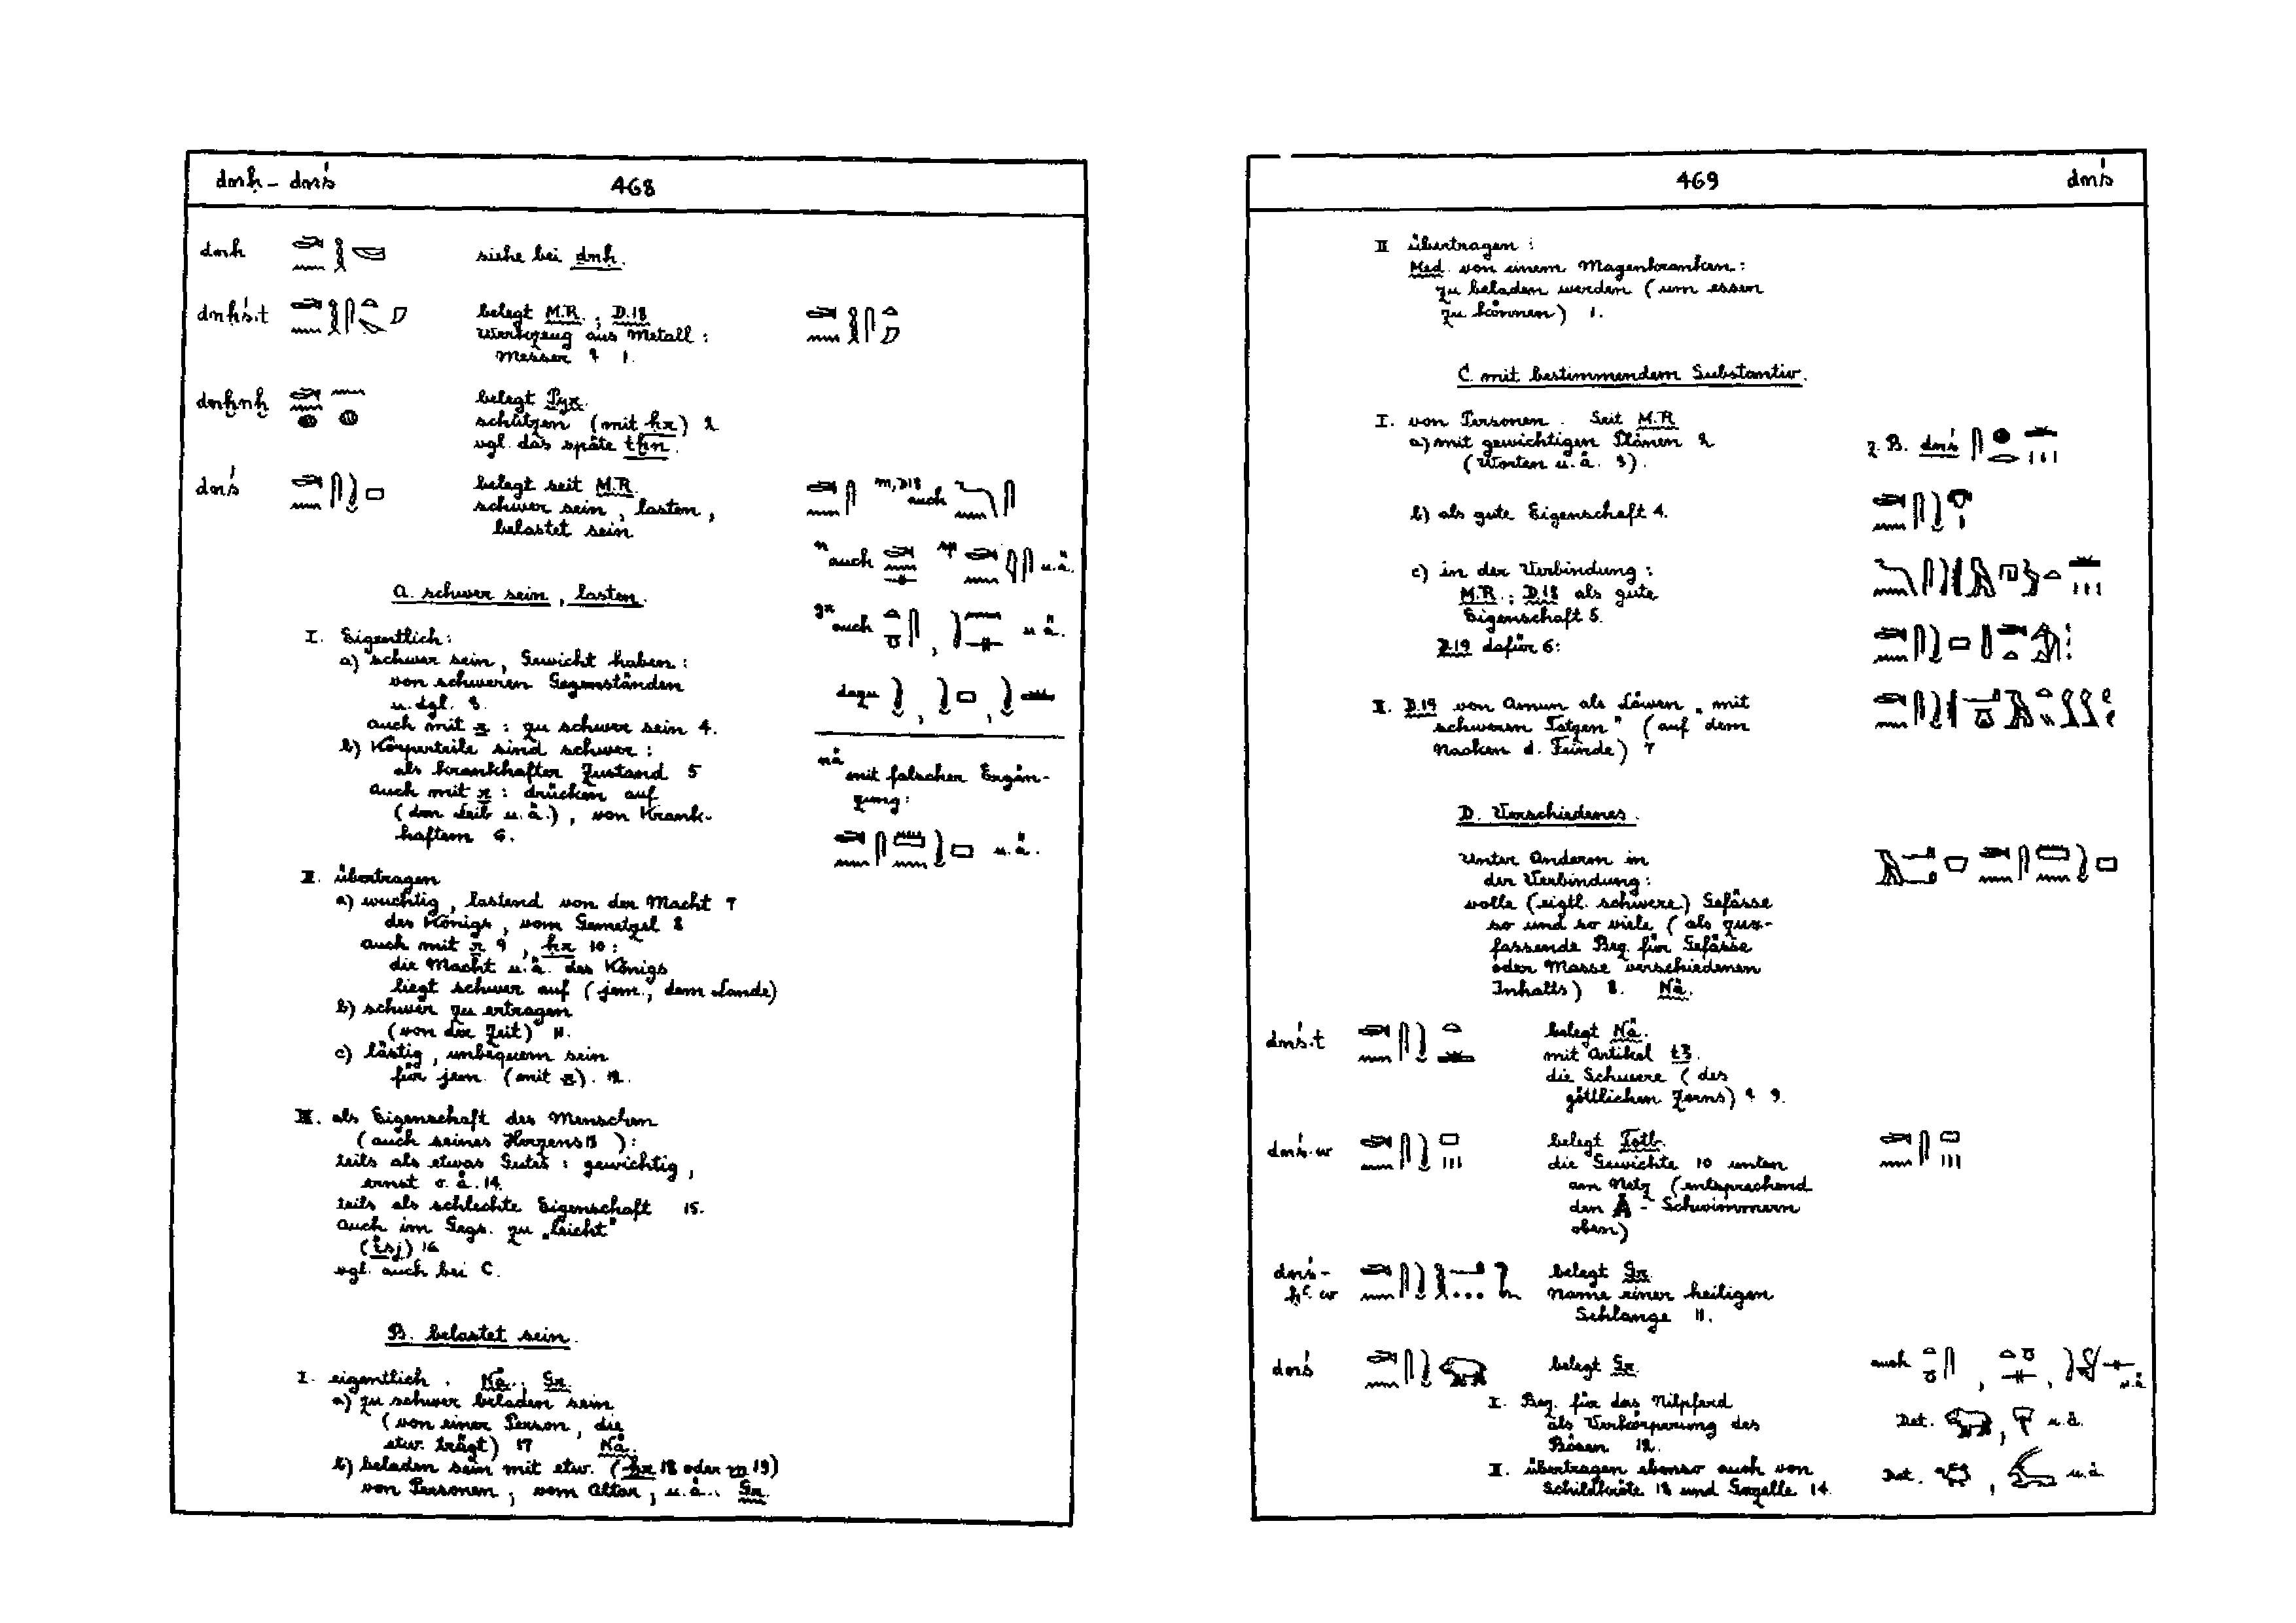 dnḥ - dnś
468
dnḥ siehe bei dnḥ.
dnḥś.t belegt M.R.; D.18
Werkzeug aus Metall:
Messer ? 1.
dnḫnḫ belegt Pyr.
schützen (mit ḥr) 2
vgl. das späte thn.
dnś belegt seit M.R.
schwer sein, lasten,
belastet sein
m, D18 auch
n auch sp u.ä.
gr auch , u.ä.
dazu , ,
nä mit falscher Ergän-
zung:
u.ä.
A. schwer sein, lasten.
I. Eigentlich:
a) schwer sein, Gewicht haben:
von schweren Gegenständen
u. dgl. 3.
auch mit r: zu schwer sein 4.
b) Körperteile sind schwer:
als krankhafter Zustand 5
auch mit r: drücken auf
(den Leib u.ä.), von Krank-
haftem 6.
II. übertragen
a) wuchtig, lastend von der Macht 7
des Königs, vom Gemetzel 8
auch mit r 9, ḥr 10:
die Macht u.ä. des Königs
liegt schwer auf (jem., dem Lande)
b) schwer zu ertragen
(von der Zeit) 11.
c) lästig, unbequem sein
für jem. (mit r). 12.
III. als Eigenschaft des Menschen
(auch seines Herzens 13):
teils als etwas Gutes: gewichtig,
ernst o.ä. 14.
teils als schlechte Eigenschaft 15.
auch im Gegs. zu „leicht"
(iśj) 16
vgl. auch bei C.
B. belastet sein.
I. eigentlich. Nä.; Gr.
a) zu schwer beladen sein
(von einer Person, die
etw. trägt) 17 Nä.
b) beladen sein mit etw. (ḥr 18 oder m 19)
von Personen; vom Altar, u.ä.. Gr.
469
dnś
II übertragen:
Med. von einem Magenkranken:
zu beladen werden (um essen
zu können) 1.
C. mit bestimmendem Substantiv.
I. von Personen. Seit M.R
a) mit gewichtigen Plänen 2 z.B. dnś
(Worten u.ä. 3).
b) als gute Eigenschaft 4.
c) in der Verbindung:
M.R.; D.18 als gute
Eigenschaft 5.
D.19 dafür 6:
II. D.19 von Amun als Löwen „mit
schweren Tatzen" (auf dem
Nacken d. Feinde) 7
D. Verschiedenes.
Unter Anderm in
der Verbindung:
volle (eigtl. schwere) Gefässe
so und so viele (als zus-
fassende Bez. für Gefässe
oder Masse verschiedenen
Inhalts) 8. Nä.
dnś.t belegt Nä.
mit Artikel tꜣ.
die Schwere (des
göttlichen Zorns) ? 9.
dnś.w belegt Totb.
die Gewichte 10 unten
am Netz (entsprechend
den - Schwimmern
oben)
dnś - belegt Gr.
ḥꜥ.w Name einer heiligen
Schlange 11.
dnś belegt Gr. auch , , u.ä
I. Bez. für das Nilpferd
als Verkörperung des Det. , u.ä.
Bösen 12.
II. übertragen ebenso auch von Det. , u.ä
Schildkröte 13 und Gazelle 14.